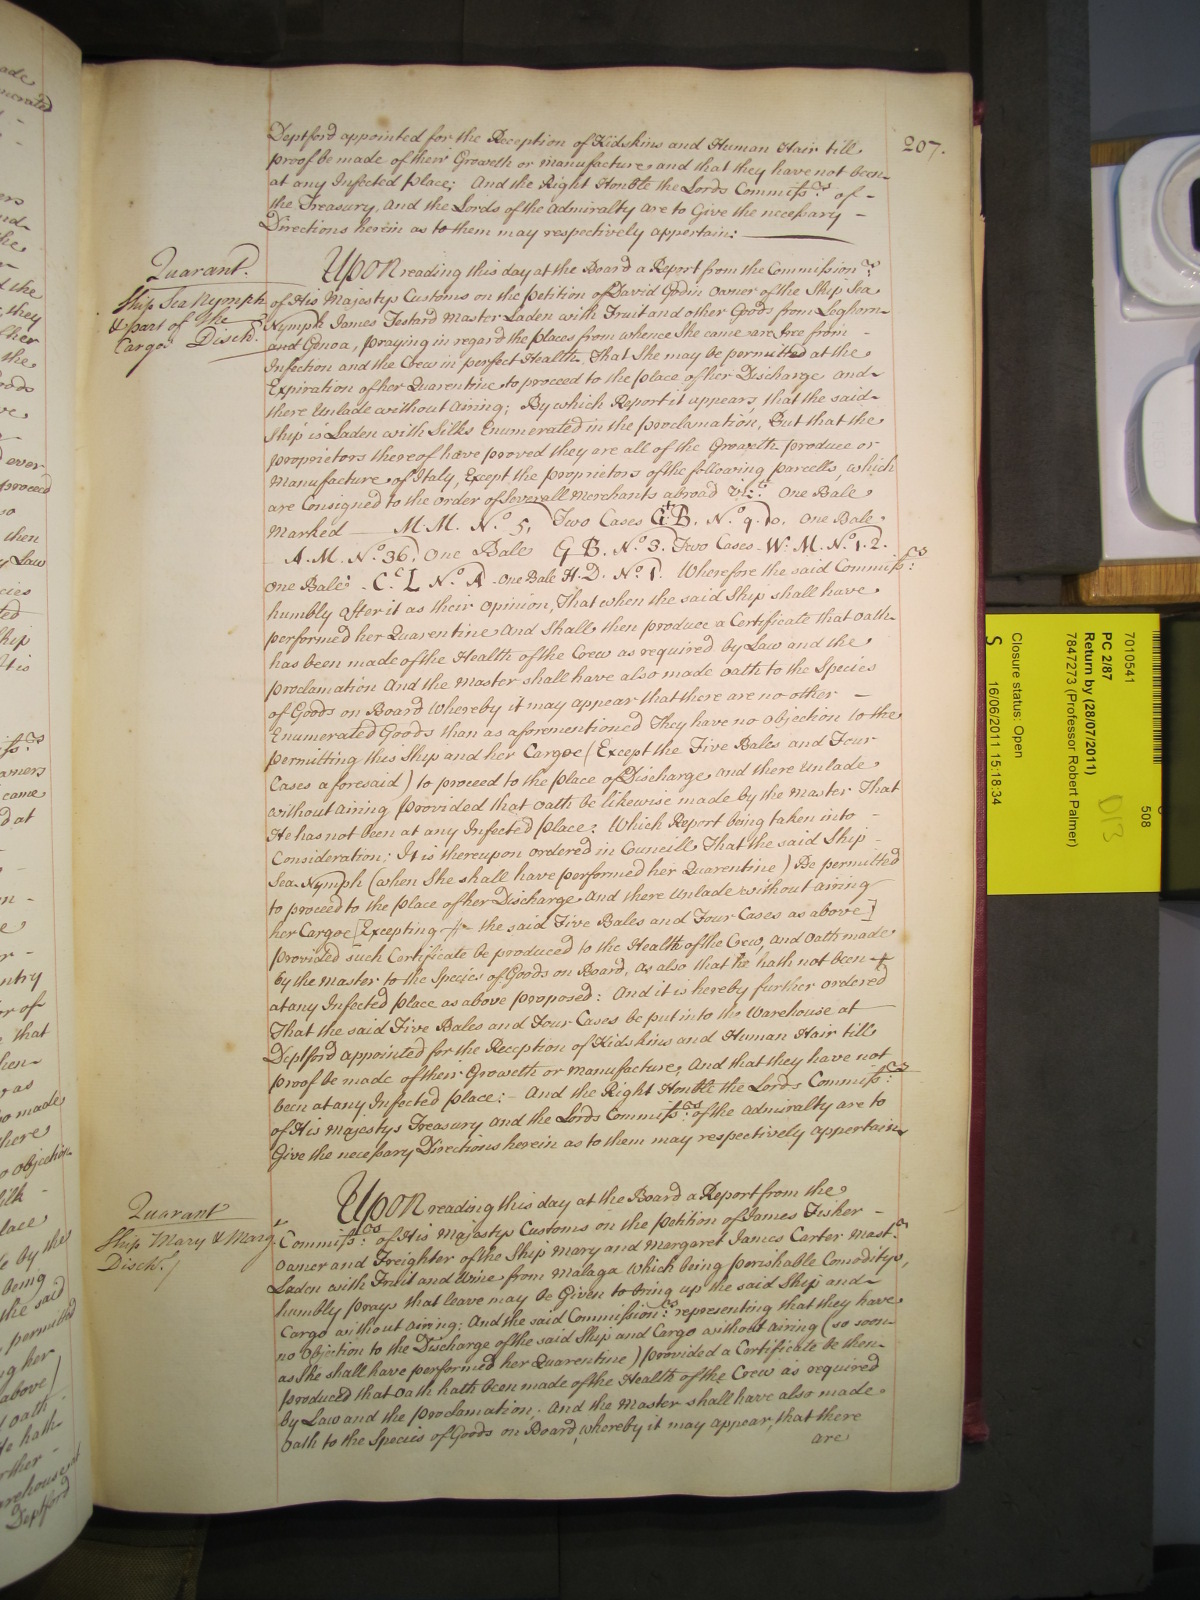 207.
Deptford appointed for the Reception of Kidskins and Human Hair till
proof be made of their Groweth or manufacture and that they have not been
at any Infected place; And the Right Honble the Lords Commissrs of
the Treasury, and the Lords of the Admiralty are to Give the necessary
Directions herein as to them may respectively appertain:
Quarant.
Ship Sea Nymph
& part of the
Cargo Disch.
Upon reading this day at the Board a Report from the Commissionrs
of His Majestys Customs on the petition of David Godin owner of the Ship Sea
Nymph James Testard Master Laden with Fruit and other Goods from Leghorn
and Genoa, praying in regard the places from whence She came are free from
Infection and the Crew in perfect Health, That She may be permitted at the
Expiration of her Quarentine to proceed to the place of her Discharge and
there Unlade without airing; By which Report it appears that the said
Ship is Laden with Silks Enumerated in the proclamation, But that the
proprietors thereof have proved they are all of the Groweth produce or
Manufacture of Italy, Except the proprietors of the following parcells, which
are Consigned to the order of severall Merchants abroad Vizt. One Bale
Marked — M. M. No. 5, Two Cases G B. No. 9. 10. One Bale
A. M. No. 36, One Bale G B. No. 3. Two Cases W: M. No. 1. 2.
One Bale C c L No. A One Bale H. D. No. 1. Wherefore the said Commissrs
humbly offer it as their opinion, That when the said Ship shall have
performed her Quarentine and shall then produce a Certificate that Oath
has been made of the Health of the Crew as required by Law and the
proclamation And the Master shall have also made oath to the Species
of Goods on Board Whereby it may appear that there are no other
Enumerated Goods than as aforementioned They have no objection to the
permitting this Ship and her Cargoe (Except the Five Bales and Four
Cases aforesaid) to proceed to the place of Discharge and there Unlade
without airing provided that oath be likewise made by the Master That
He has not been at any Infected place: Which Report being taken into
Consideration; It is thereupon ordered in Councill That the said Ship
Sea Nymph (when She shall have performed her Quarentine) Be permitted
to proceed to the place of her Discharge and there Unlade without airing
her Cargoe [Excepting the said Five Bales and Four Cases as above]
provided such Certificate be produced to the Health of the Crew, and oath made
by the Master to the Species of Goods on Board, as also that he hath not been
at any Infected place as above proposed: And it is hereby further ordered
That the said Five Bales and Four Cases be put into the Warehouse at
Deptford appointed for the Reception of Kidskins and Human Hair till
proof be made of their Groweth or Manufacture, And that they have not
been at any Infected place: And the Right Honble the Lords Commissrs
of His Majestys Treasury and the Lords Commissrs of the Admiralty are to
Give the necessary Directions herein as to them may respectively appertain
Quarant
Ship Mary & Margt.
Disch.
Upon reading this day at the Board a Report from the
Commissrs of His Majestys Customs on the petition of James Fisher
owner and Freighter of the Ship Mary and Margaret James Carter Mastr
Laden with Fruit and Wine from Malaga which being perishable Comoditys,
humbly prays that leave may be Given to bring up the said Ship and
Cargo without airing; And the said Commissionrs representing that they have
no Objection to the Discharge of the said Ship and Cargo without airing (so soon
as She shall have performed her Quarentine) provided a Certificate be then
produced that oath hath been made of the Health of the Crew as required
by Law and the proclamation. And the Master shall have also made
oath to the Species of Goods on Board, whereby it may appear, that there
are
7010541
508
PC 2/87
Return by (28/07/2011)
7847273 (Professor Robert Palmer)
D13
Closure status: Open
S 16/06/2011 15:18:34